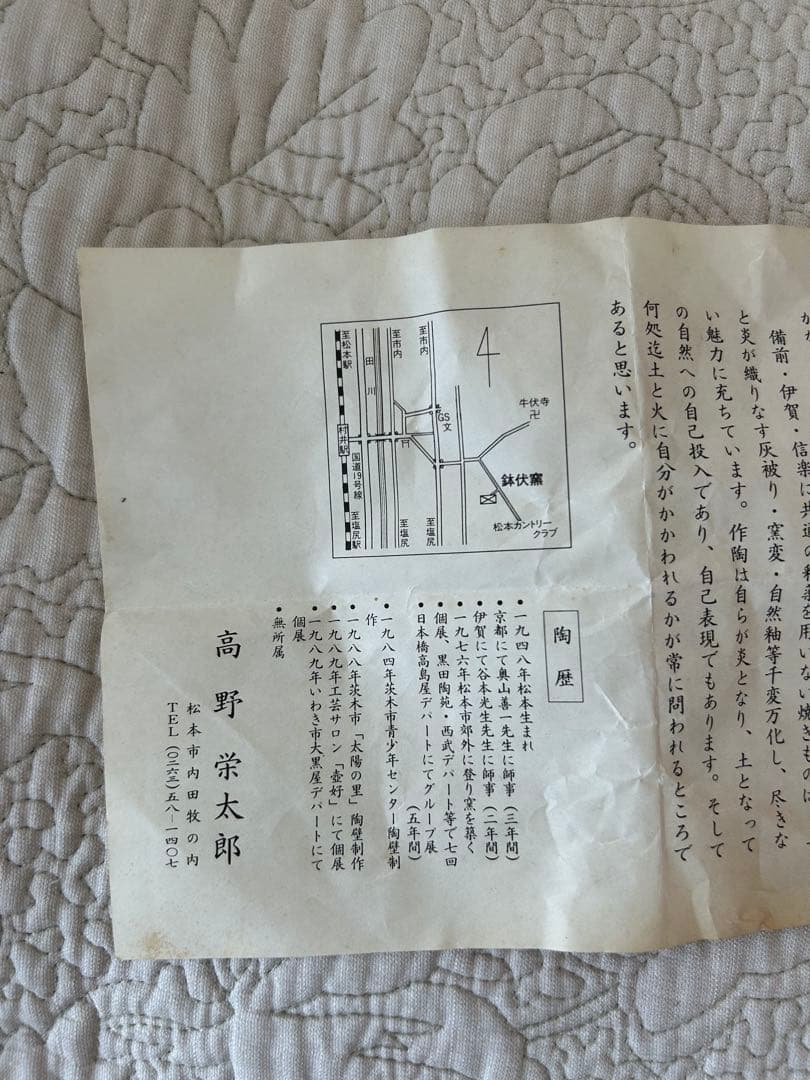 備前・伊賀・信楽に共通の釉薬を用いない焼きものは、
と炎が織りなす灰被り・窯変・自然釉等千変万化し、尽きな
い魅力に充ちています。作陶は自らが炎となり、土となって
の自然への自己投入であり、自己表現でもあります。そして
何処迄土と火に自分がかかわれるかが常に問われるところで
あると思います。
至松本駅
田川
至市内
至市内
牛伏寺
卍
GS
文
村井駅
国道19号線
鉢伏窯
至塩尻駅
至塩尻
至塩尻
松本カントリー
クラブ
陶歴
●一九四八年松本生まれ
●京都にて奥山善一先生に師事（三年間）
●伊賀にて谷本光生先生に師事（二年間）
●一九七六年松本市郊外に登り窯を築く
●個展、黒田陶苑・西武デパート等で七回
●日本橋高島屋デパートにてグループ展
（五年間）
●一九八四年茨木市青少年センター陶壁制
作
●一九八八年茨木市「太陽の里」陶壁制作
●一九八九年工芸サロン「壺好」にて個展
●一九八九年いわき市大黒屋デパートにて
個展
●無所属
高野栄太郎
松本市内田牧の内
TEL（〇二六三）五八―一四〇七